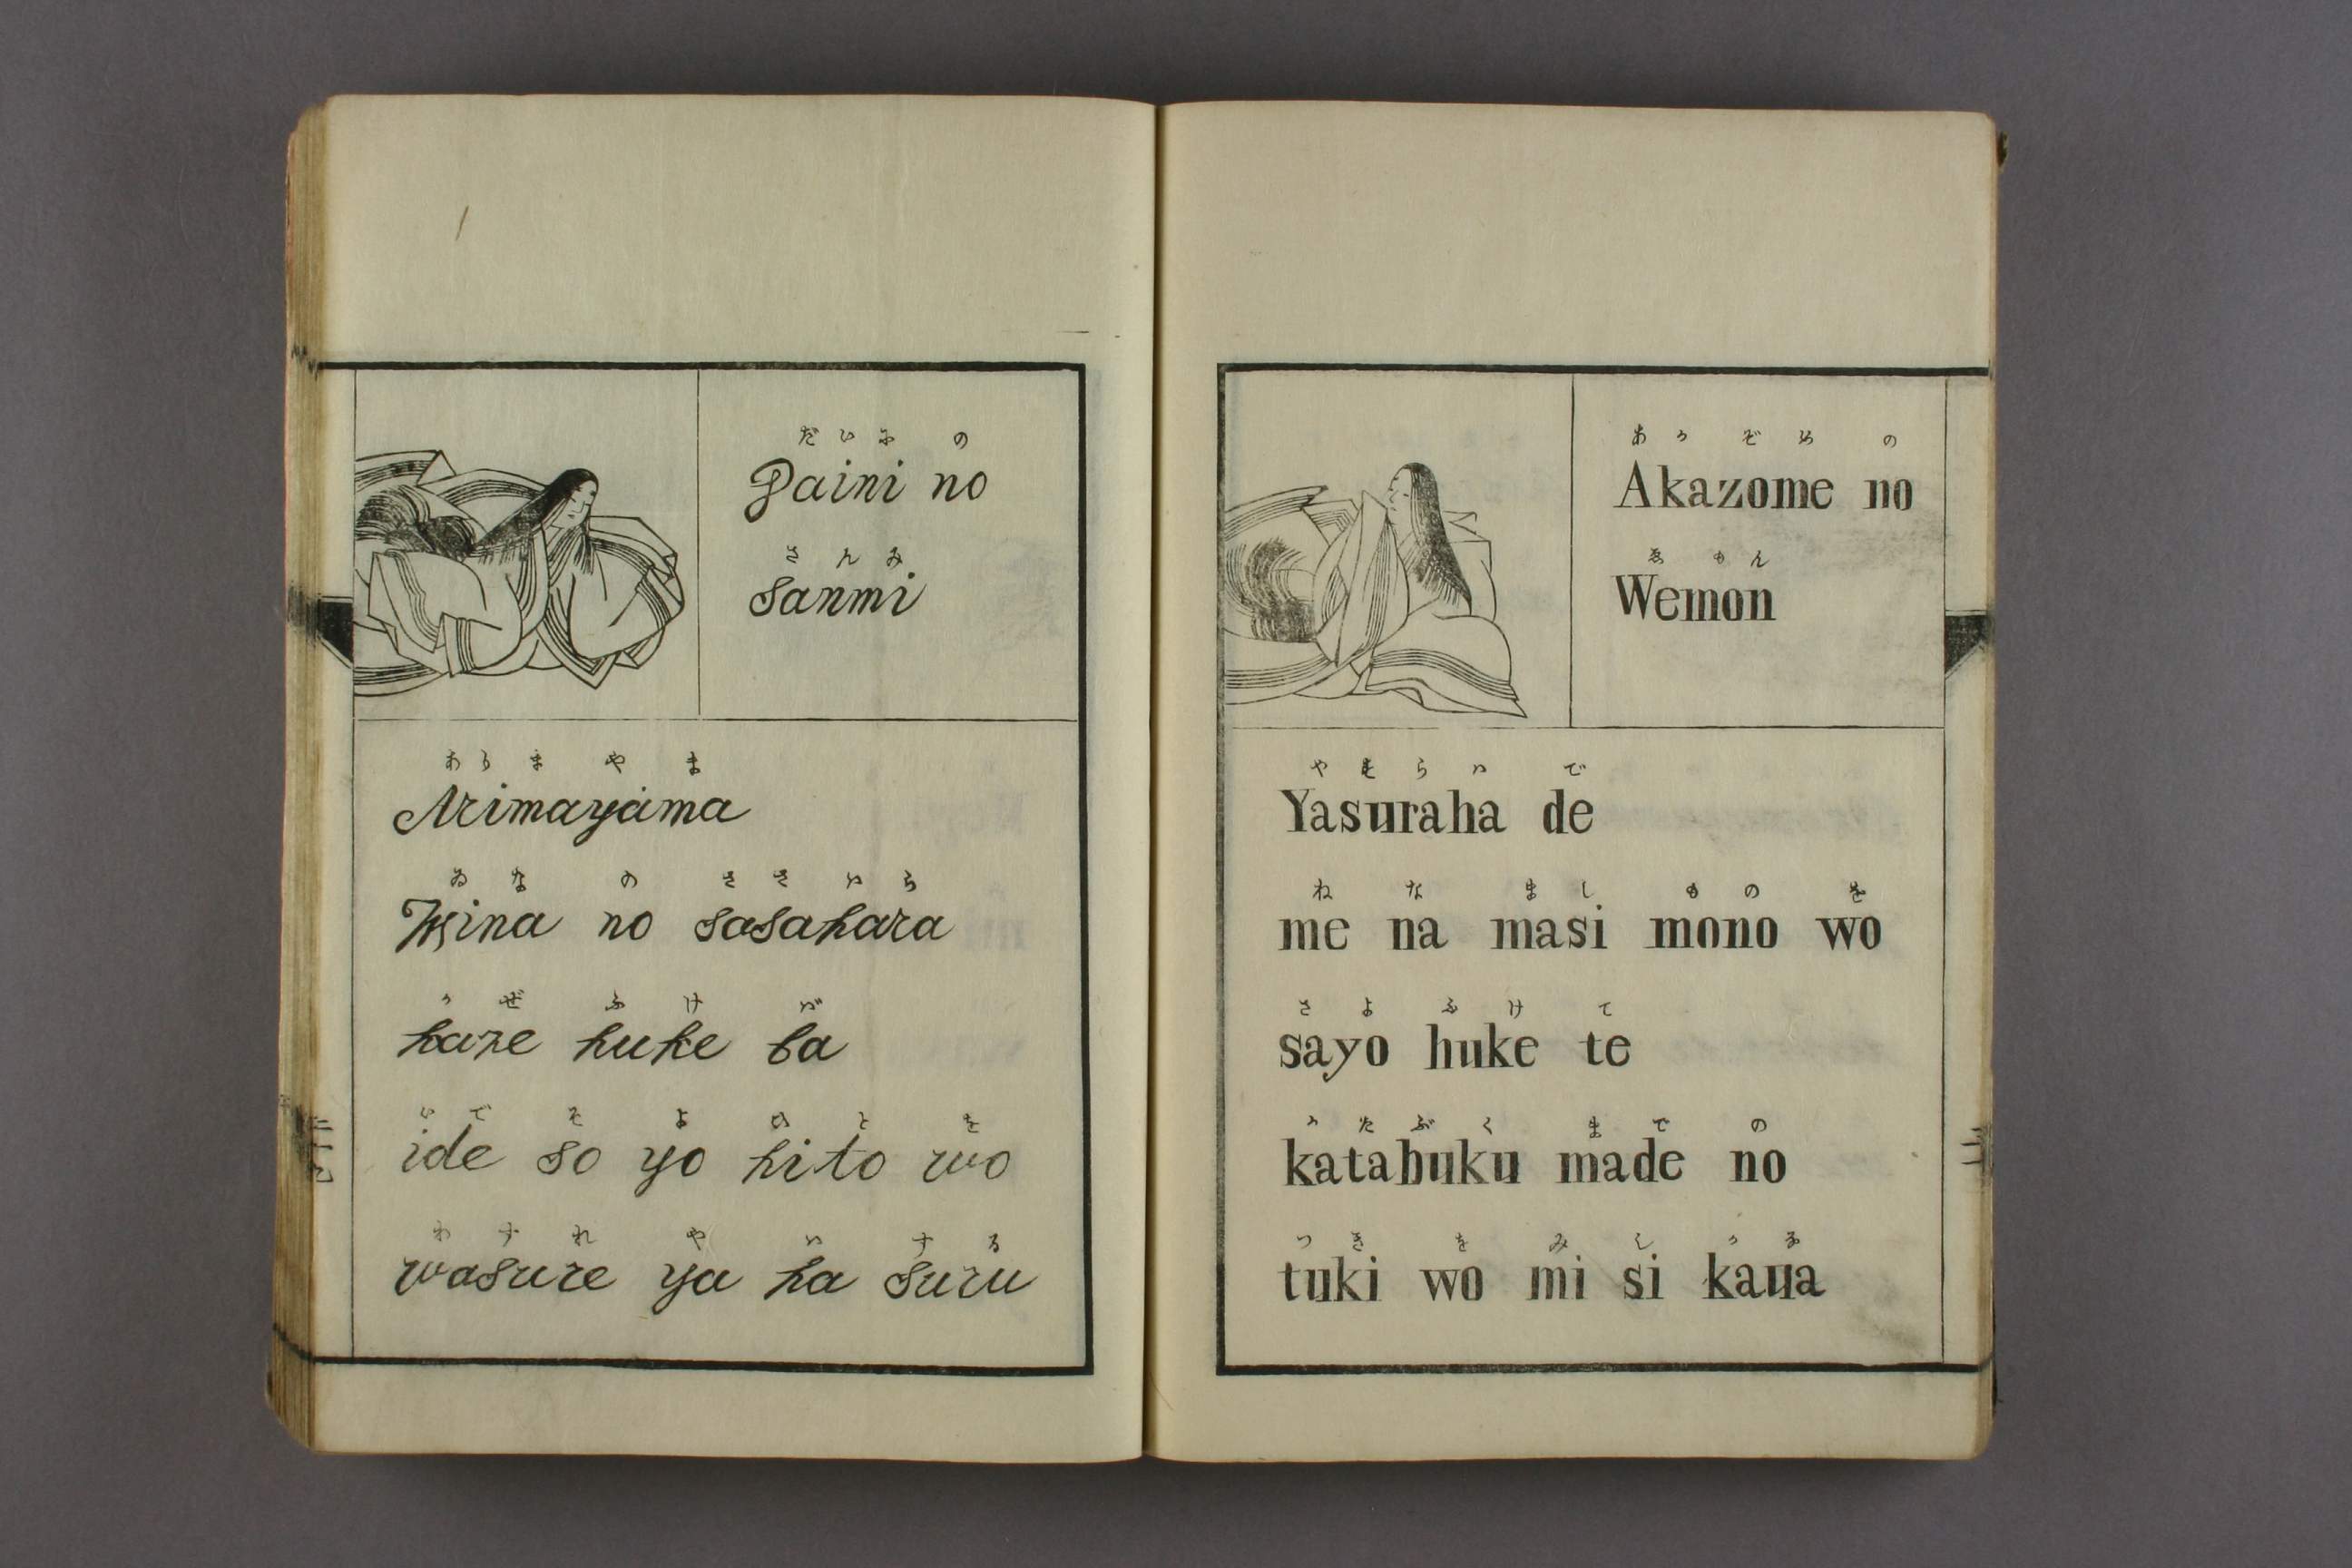 だいにの
Daini no
さんみ
sanmi
ありまやま
Arimayama
ゐなのささはら
Wina no sasahara
かぜふけば
kaze huke ba
いでそよひとを
ide so yo hito wo
わすれやはする
wasure ya ha suru
あかぞめの
Akazome no
ゑもん
Wemon
やすらはで
Yasuraha de
ねなましものを
me na masi mono wo
さよふけて
sayo huke te
かたぶくまでの
katabuku made no
つきをみしかな
tuki wo mi si kaua